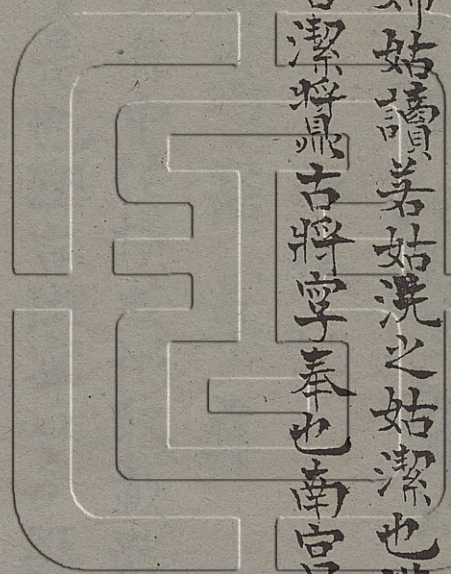 姑讀若姑洗之姑潔也
潔䵼古將字奉也南宮